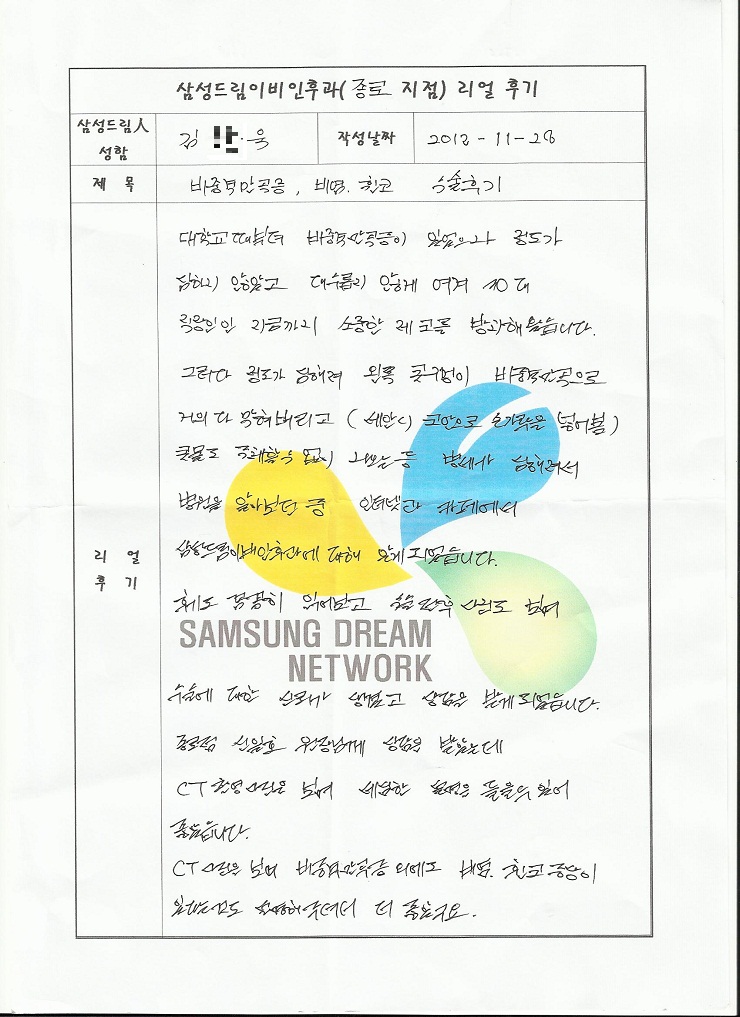 삼성드림이비인후과(종로 지점) 리얼 후기
삼성드림人
성함
김 욱
작성날짜
2012-11-28
제 목
비중격만곡증, 비염. 축농증 수술후기
리 얼
후 기
대학교때부터 비중격만곡증이 있었으나 정도가
심하지 않았고 대수롭지 않게 여겨
직장인인 지금까지 소중한 제 코를 방과해왔습니다.
그러다 정도가 심해져 왼쪽 콧구멍이 비중격만곡으로
거의 다 막혀버리고 (세안시 코안으로 손가락을 넣어봄)
콧물도 주체할수 없이 나오는등 병세가 심해져서
병원을 알아보던 중 인터넷과 카페에서
삼성드림이비인후과에 대해 알게되었습니다.
후기도 꼼꼼히 읽어보고 수술 전후 사진도 보며
SAMSUNG DREAM
NETWORK
수술에 대한 신뢰가 생겼고 상담을 받게되었습니다.
종로점 신일호 원장님께 상담을 받았는데
CT촬영사진을 보며 세심한 설명을 들을수 있어
좋았습니다.
CT 사진을 보며 비중격만곡증 외에도 비염. 증상이
있다는것도 설명해주셔서 더 좋았구요.